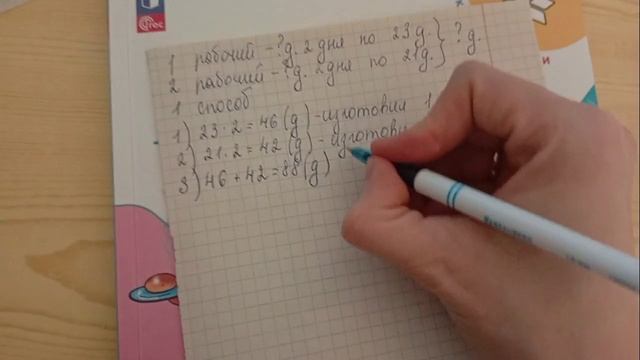 1 рабочий - ? д. 2 дня по 23 д. } ? д.
2 рабочий - ? д. 2 дня по 21 д.
1 способ
1) 23 · 2 = 46 (д) - изготовил 1
2) 21 · 2 = 42 (д) -
3) 46 + 42 = 88 (д)